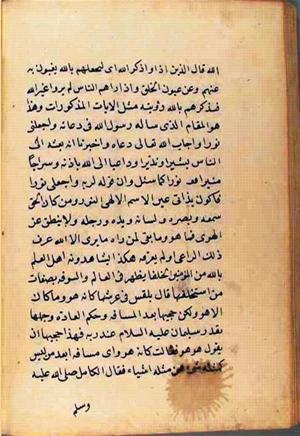 الله قال الذين اذا راوا ذكر الله اى لتحققهم بالله يغيبون به
عنهم وعن عيون الخلق واذا راهم الناس لم يروا غير الله
فتذكرهم بالله رؤيته مثل الايات المذكورات وهذا
هو المقام الذى ساله رسول الله فى دعائه واجعلنى
نورا واجاب الله تعالى دعاه واخبرنا انه بعثه الى
الناس بشيرا ونذيرا وداعيا الى الله باذنه وسراجا
منيرا فعد نورا كما سئل وان قوله لربه واجعلنى نورا
فاكون بذاتى عين الاسم الالهى النور ومن كان الحق
سمعه وبصره ولسانه ويده ورجله ولا ينطق عن
الهوى فما هو وما بقى لمن راه ما يرى الا الله عرف
ذلك الرائى او لم يعرفه هكذا يشاهدونه اهل العلم
بالله من المؤمنين الخلفا يظهر فى العالم والسوقه بصفات
من استخلفها قال بلقيس فى عرشها كانه هو وما كان
الا هو ولكن حجبها بعد المسافه وحكم العاده وجهلها
بقدر سليمان عليه السلام عند ربه فهذا حجبها ان
يقول هو هو فقالت كانه هو واى مسافه ابعد من ليس
كمثله شئ من مثله اشياء فقال الكامل صلى الله عليه
وسلم